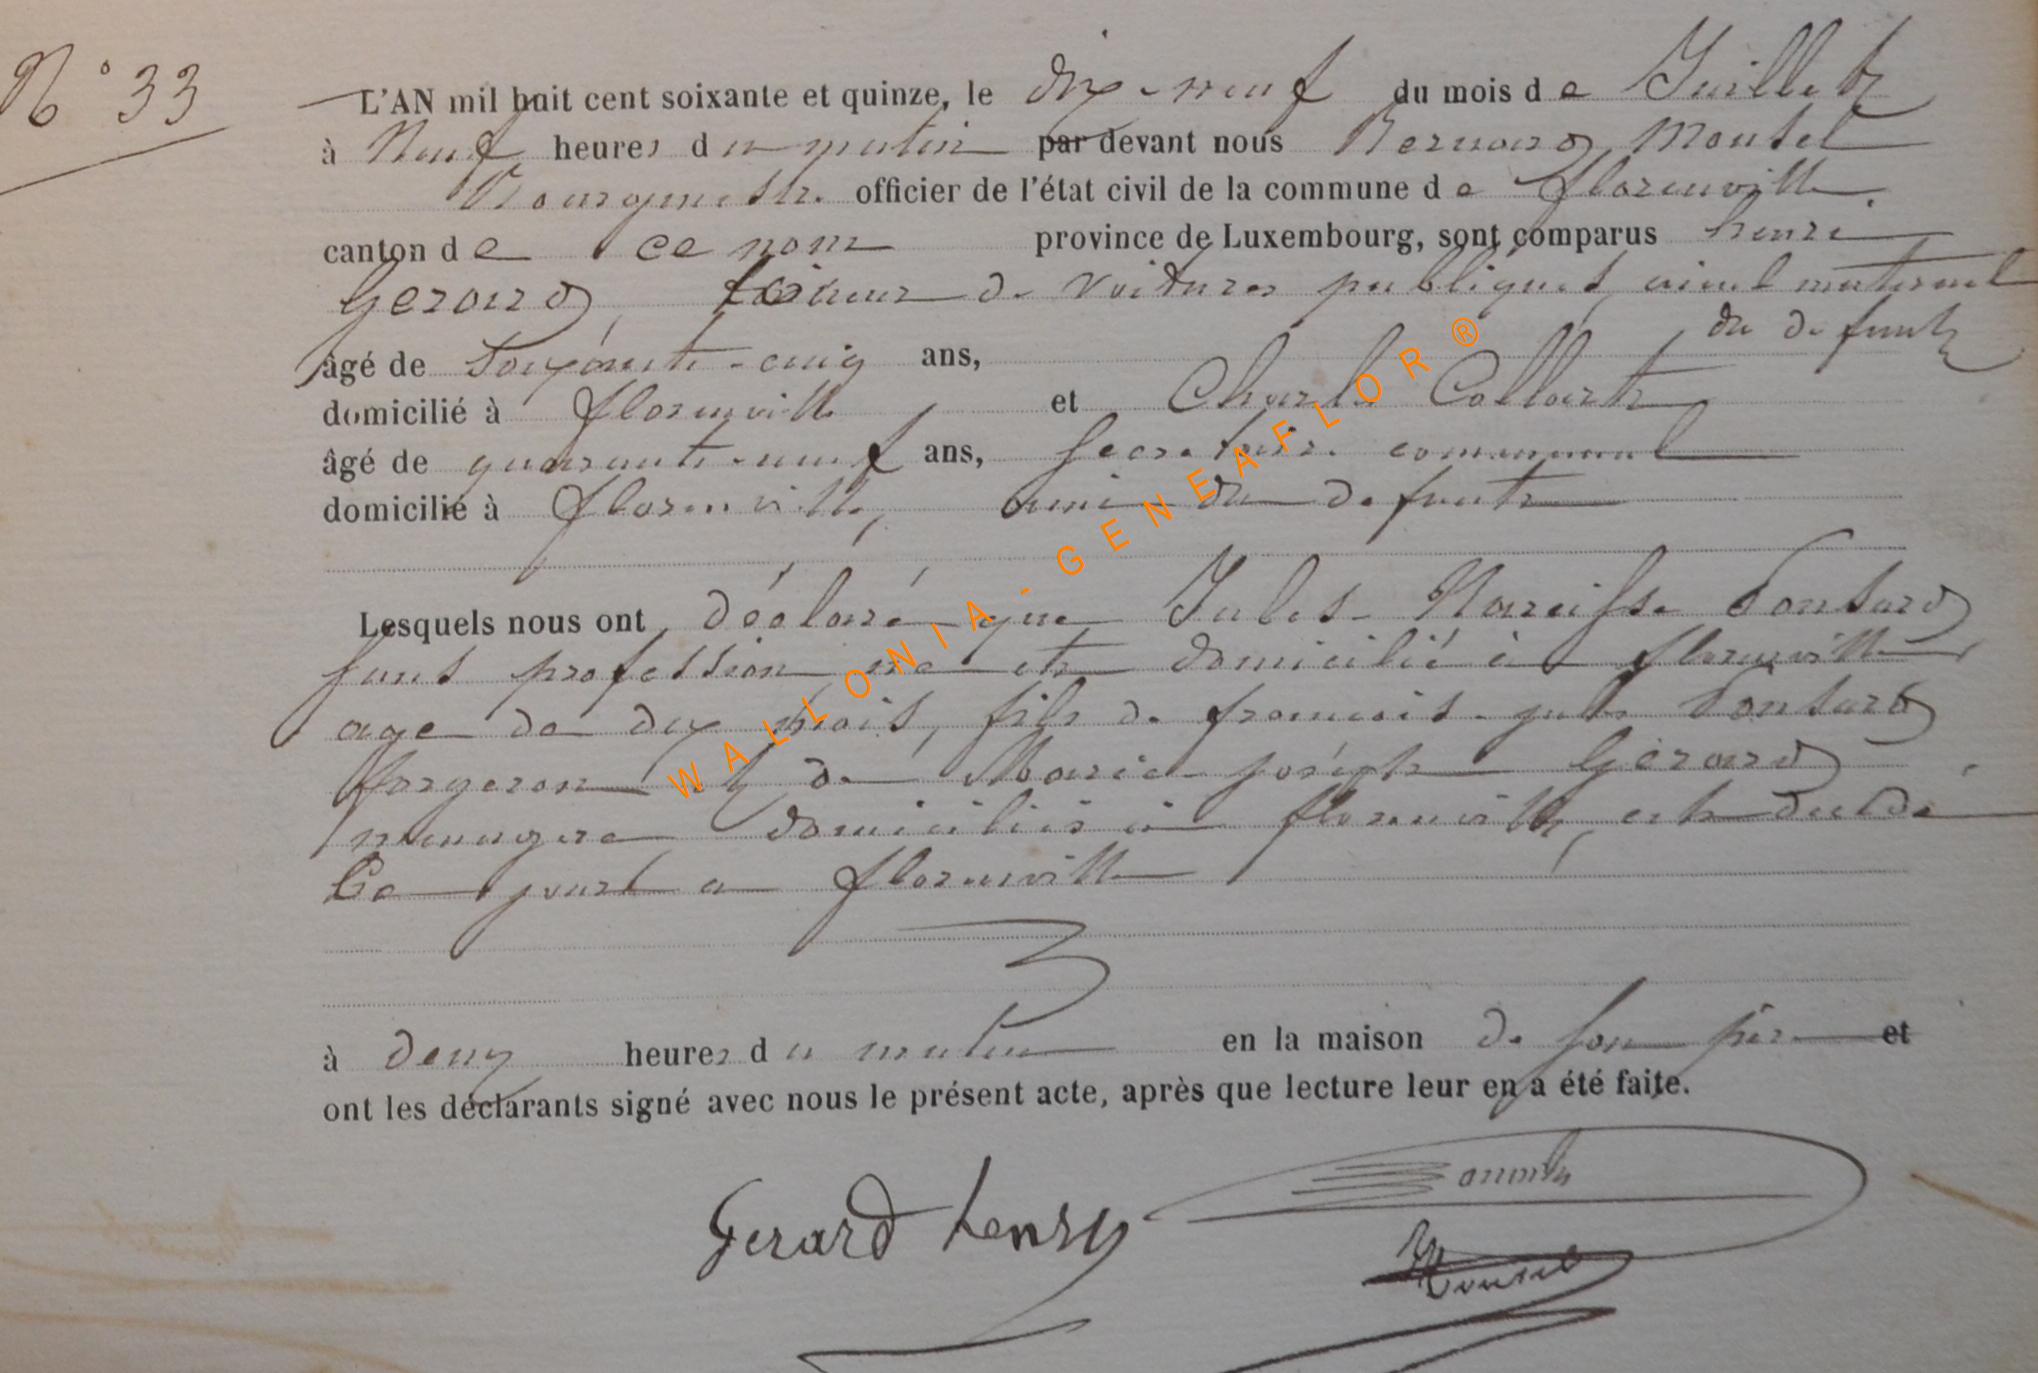 N° 33
L'AN mil huit cent soixante et quinze, le dix-neuf du mois de Juillet
à Neuf heures du matin par devant nous Bernard Moutel
Bourgmestre officier de l'état civil de la commune de florenville.
canton de ce nom province de Luxembourg, sont comparus henri
Gerard, de voitures publiques, aieul maternel
du defunt
âgé de soixante-cinq ans,
domicilié à florenville, et Charles Collart
âgé de quarante-neuf ans, secretaire communal
domicilié à florenville, ami du defunt
Lesquels nous ont déclaré que Jules Narcisse Ponsard
sans profession, né et domicilié à florenville,
age de dix mois, fils de francois-jules Ponsard
forgeron et de Marie-joséph Gérard
menagere domiciliés à florenville, est decédé
Ce jour a florenville
à deux heures du matin en la maison de son père et
ont les déclarants signé avec nous le présent acte, après que lecture leur en a été faite.
Gerard henry
WALLONIA - GENEAFLOR ®